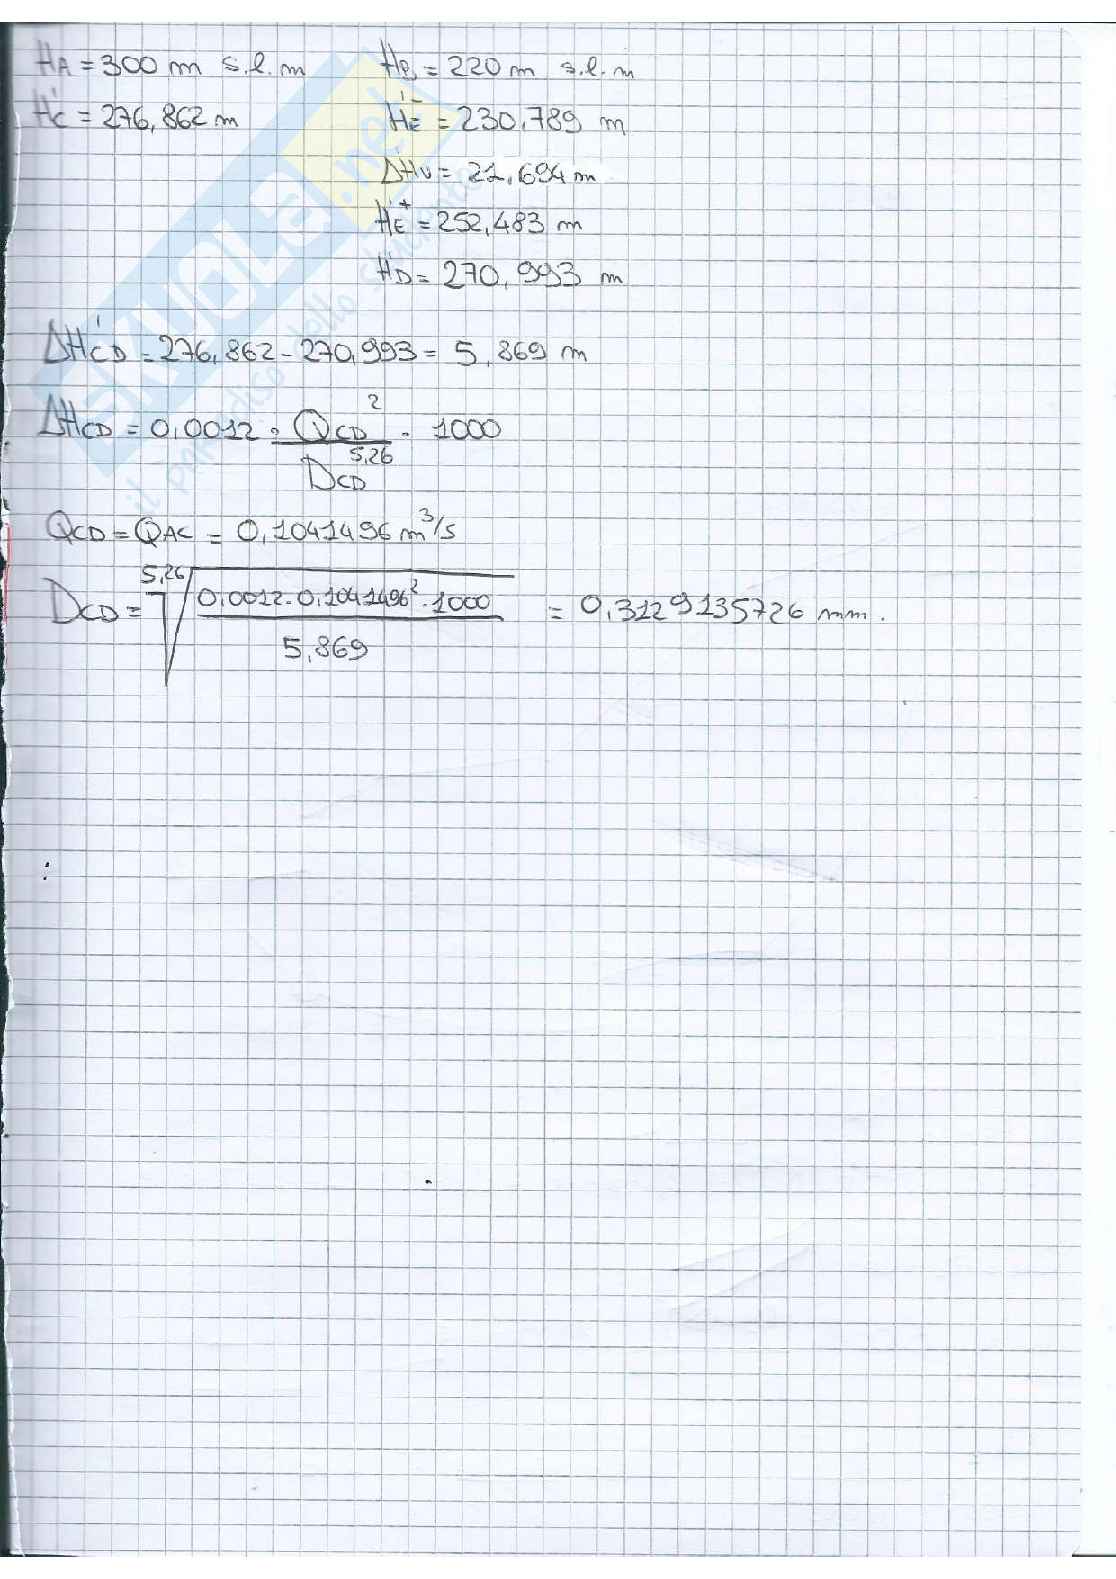 HA = 300 m s.l.m HB = 220 m s.l.m
H'C = 276,862 m H'E⁻ = 230,789 m
ΔHU = 21,694 m
H'E⁺ = 252,483 m
HD = 270,993 m
ΔH'CD = 276,862 - 270,993 = 5,869 m
ΔHCD = 0,0012 · QCD² / DCD^5,26 · 1000
QCD = QAC = 0,1041496 m³/s
DCD = 5,26√(0,0012 · 0,1041496² · 1000 / 5,869) = 0,3129135726 mm.
SKUOLA.net
il paradiso dello studente